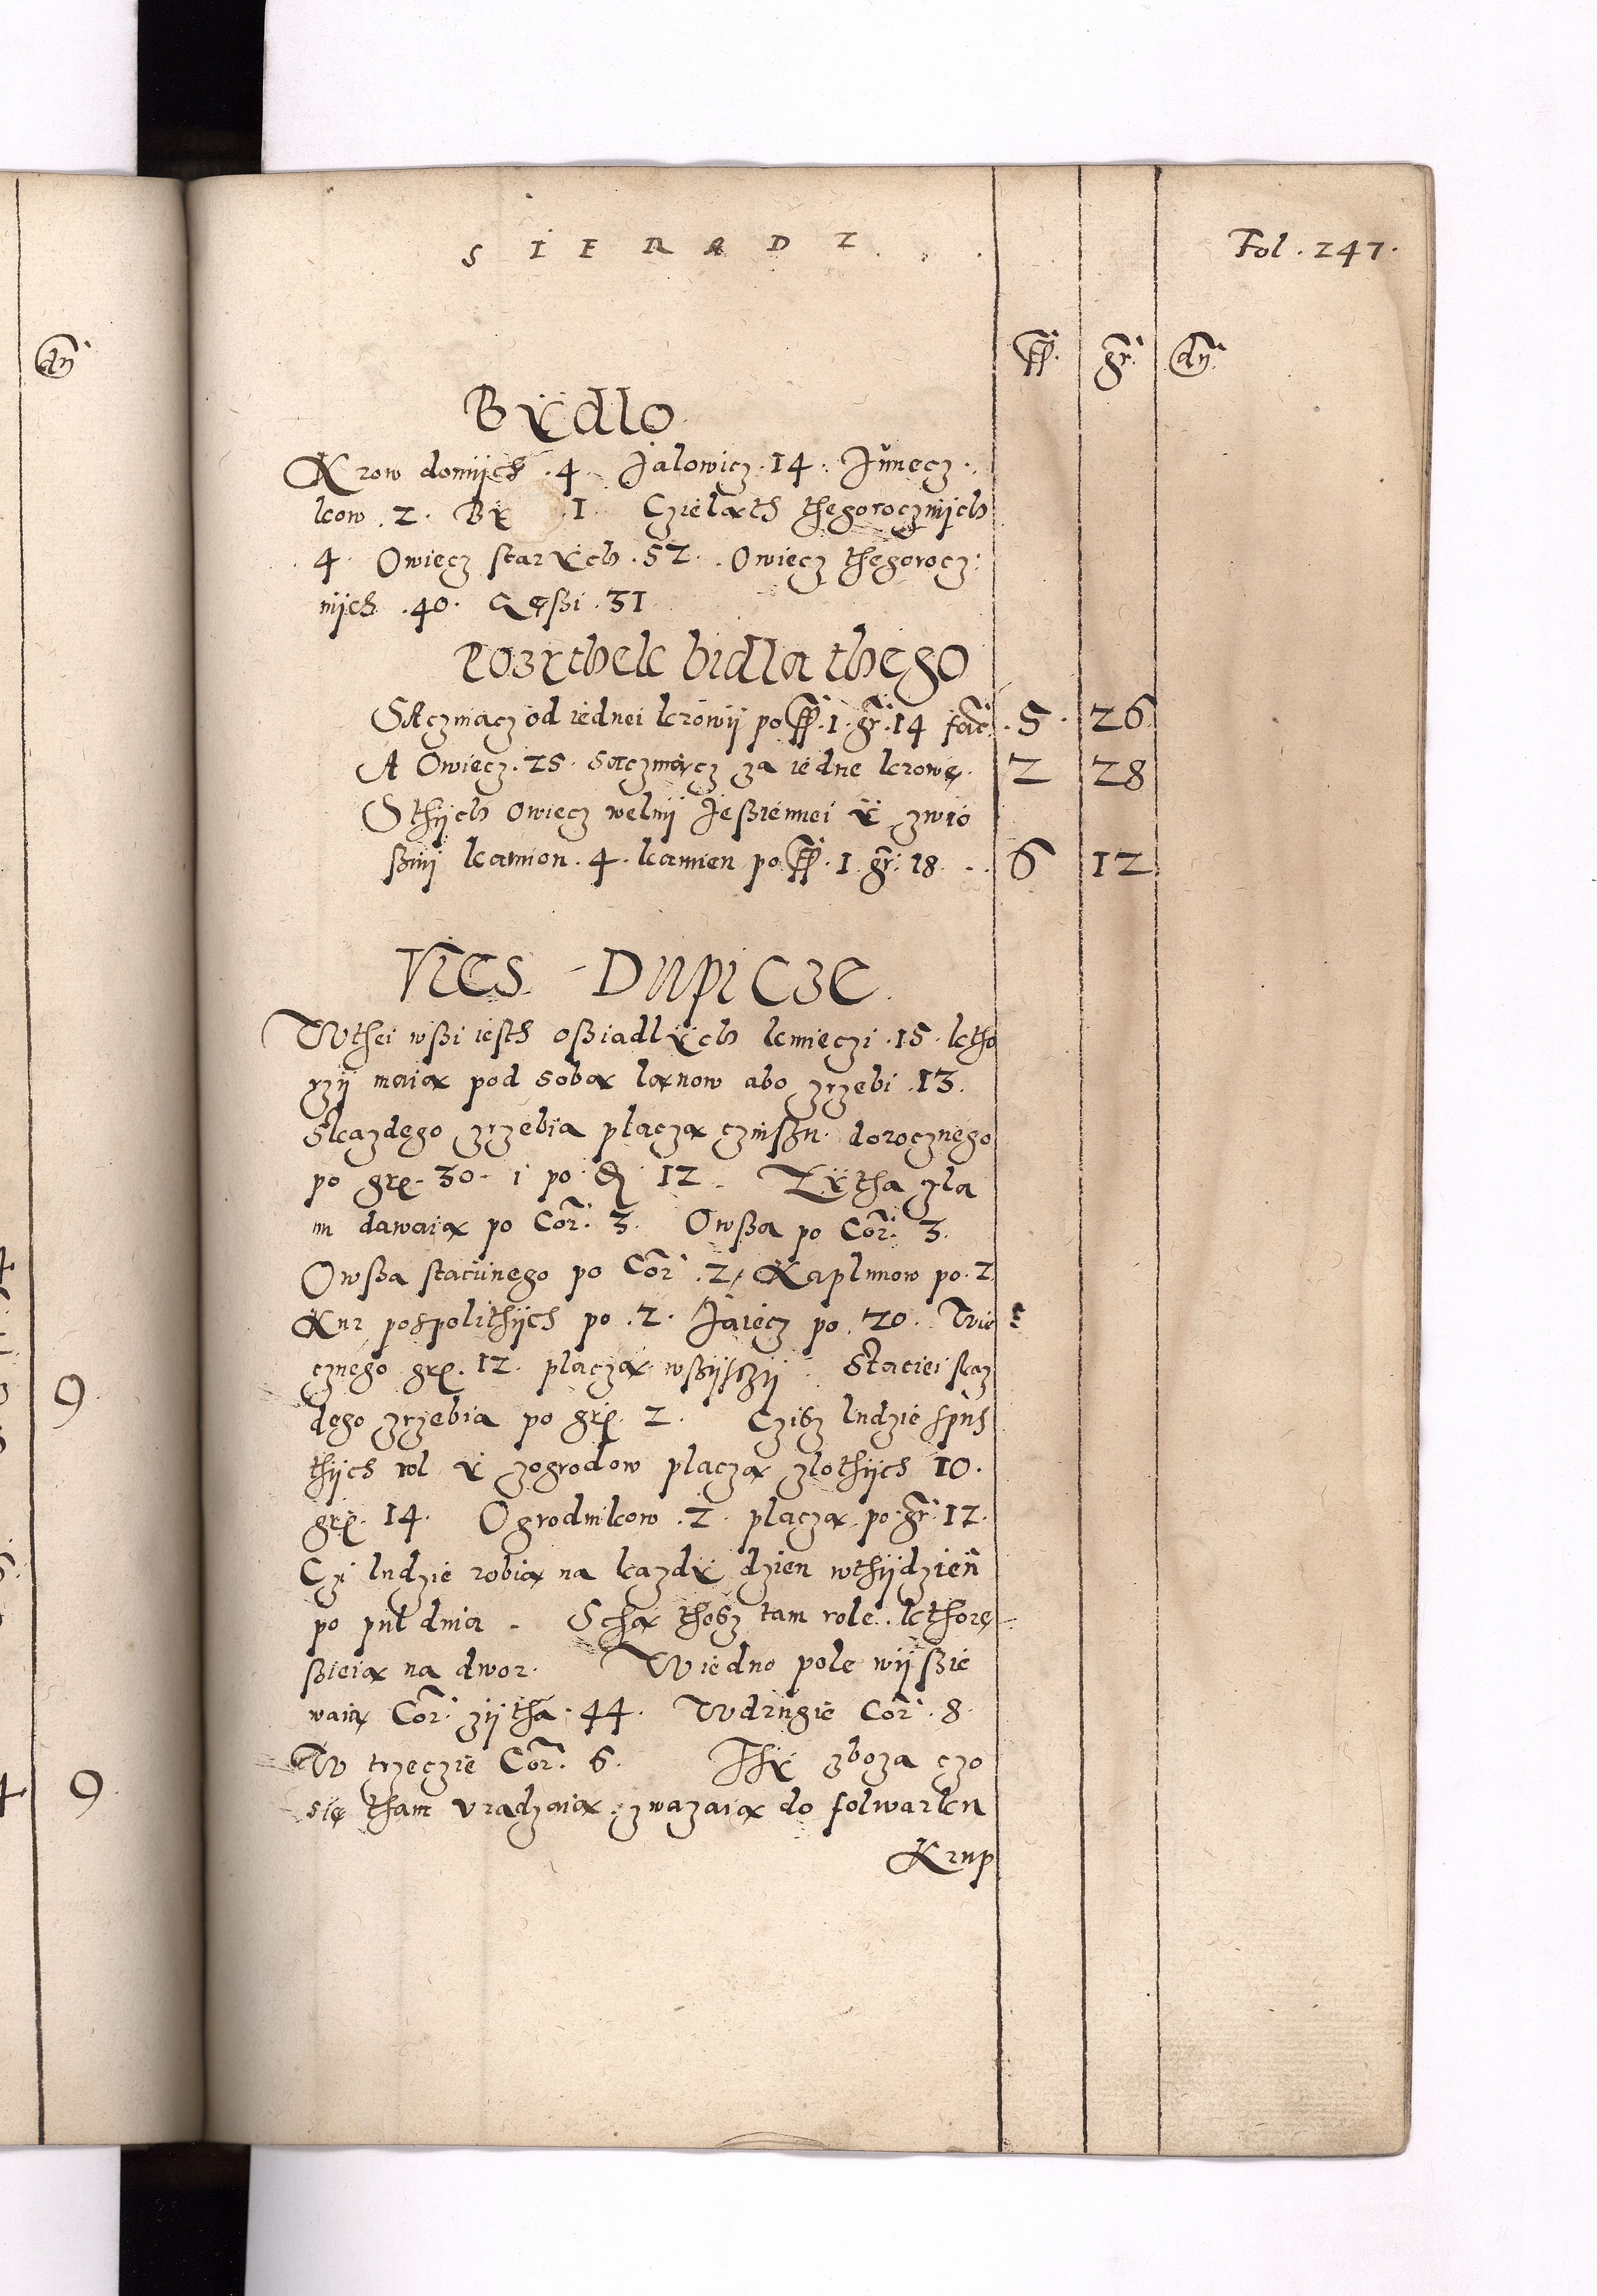 SIERADZ
Fol. 247.
fl. gr. dn.
Bydlo
Krow domijch .4. Jalowicz .14. Junecz.
kow .2. By .1. Czieląth thegorocznijch
4. Owiecz starych .52. Owiecz thegorocz.
nijch .40. Gęßi .31
Pozythek bidla thego
SAczmacz od iednei krowij po fl. 1. gr. 14 fac. .5. 26.
A Owiecz .25. saczmącz za iedne krowę. 2 28
Sthijch Owiecz welnij Jeßiennei y zwio
ßnij kamion .4. kamien po fl. 1. gr. 18 .. 6 12.
Vies Dupicze.
Wthei wßi iesth oßiadlych kmieczi .15. ktho
rzij maią pod sobą lanow abo zrzebi .13.
Skazdego zrzebia płaczą czinßu dorocznego
po grę. 30. i po 12. Zytha zla
m dawaią po Cor. 3. Owßa po Cor. 3.
Owßa staciinego po Cor .2, Kaplunow po .2
Kur pospolithijch po .2. Jaiecz po .20. Wie
cznego grę. 12 placzą wßijsczij. Staciei skaz
dego zrzebia po grę. 2. Czisz ludzie spus
thijch rol y zogrodow placzą zlothijch 10.
grę. 14. Ogrodnikow .2. placzą po gr. 12.
Czi ludzie robią na kazdy dzien wthijdzien
po pul dnia. Sthą thesz tam role kthorę
ßieią na dwor. Wiedno pole wijßie
waią Cor. zijtha .44. Wdrugie Cor. 8.
W trzeczie Cor. 6. Thy zboza czo
się tham vradzaią zwazaią do folwarku
Krup
9
4 9.
dn